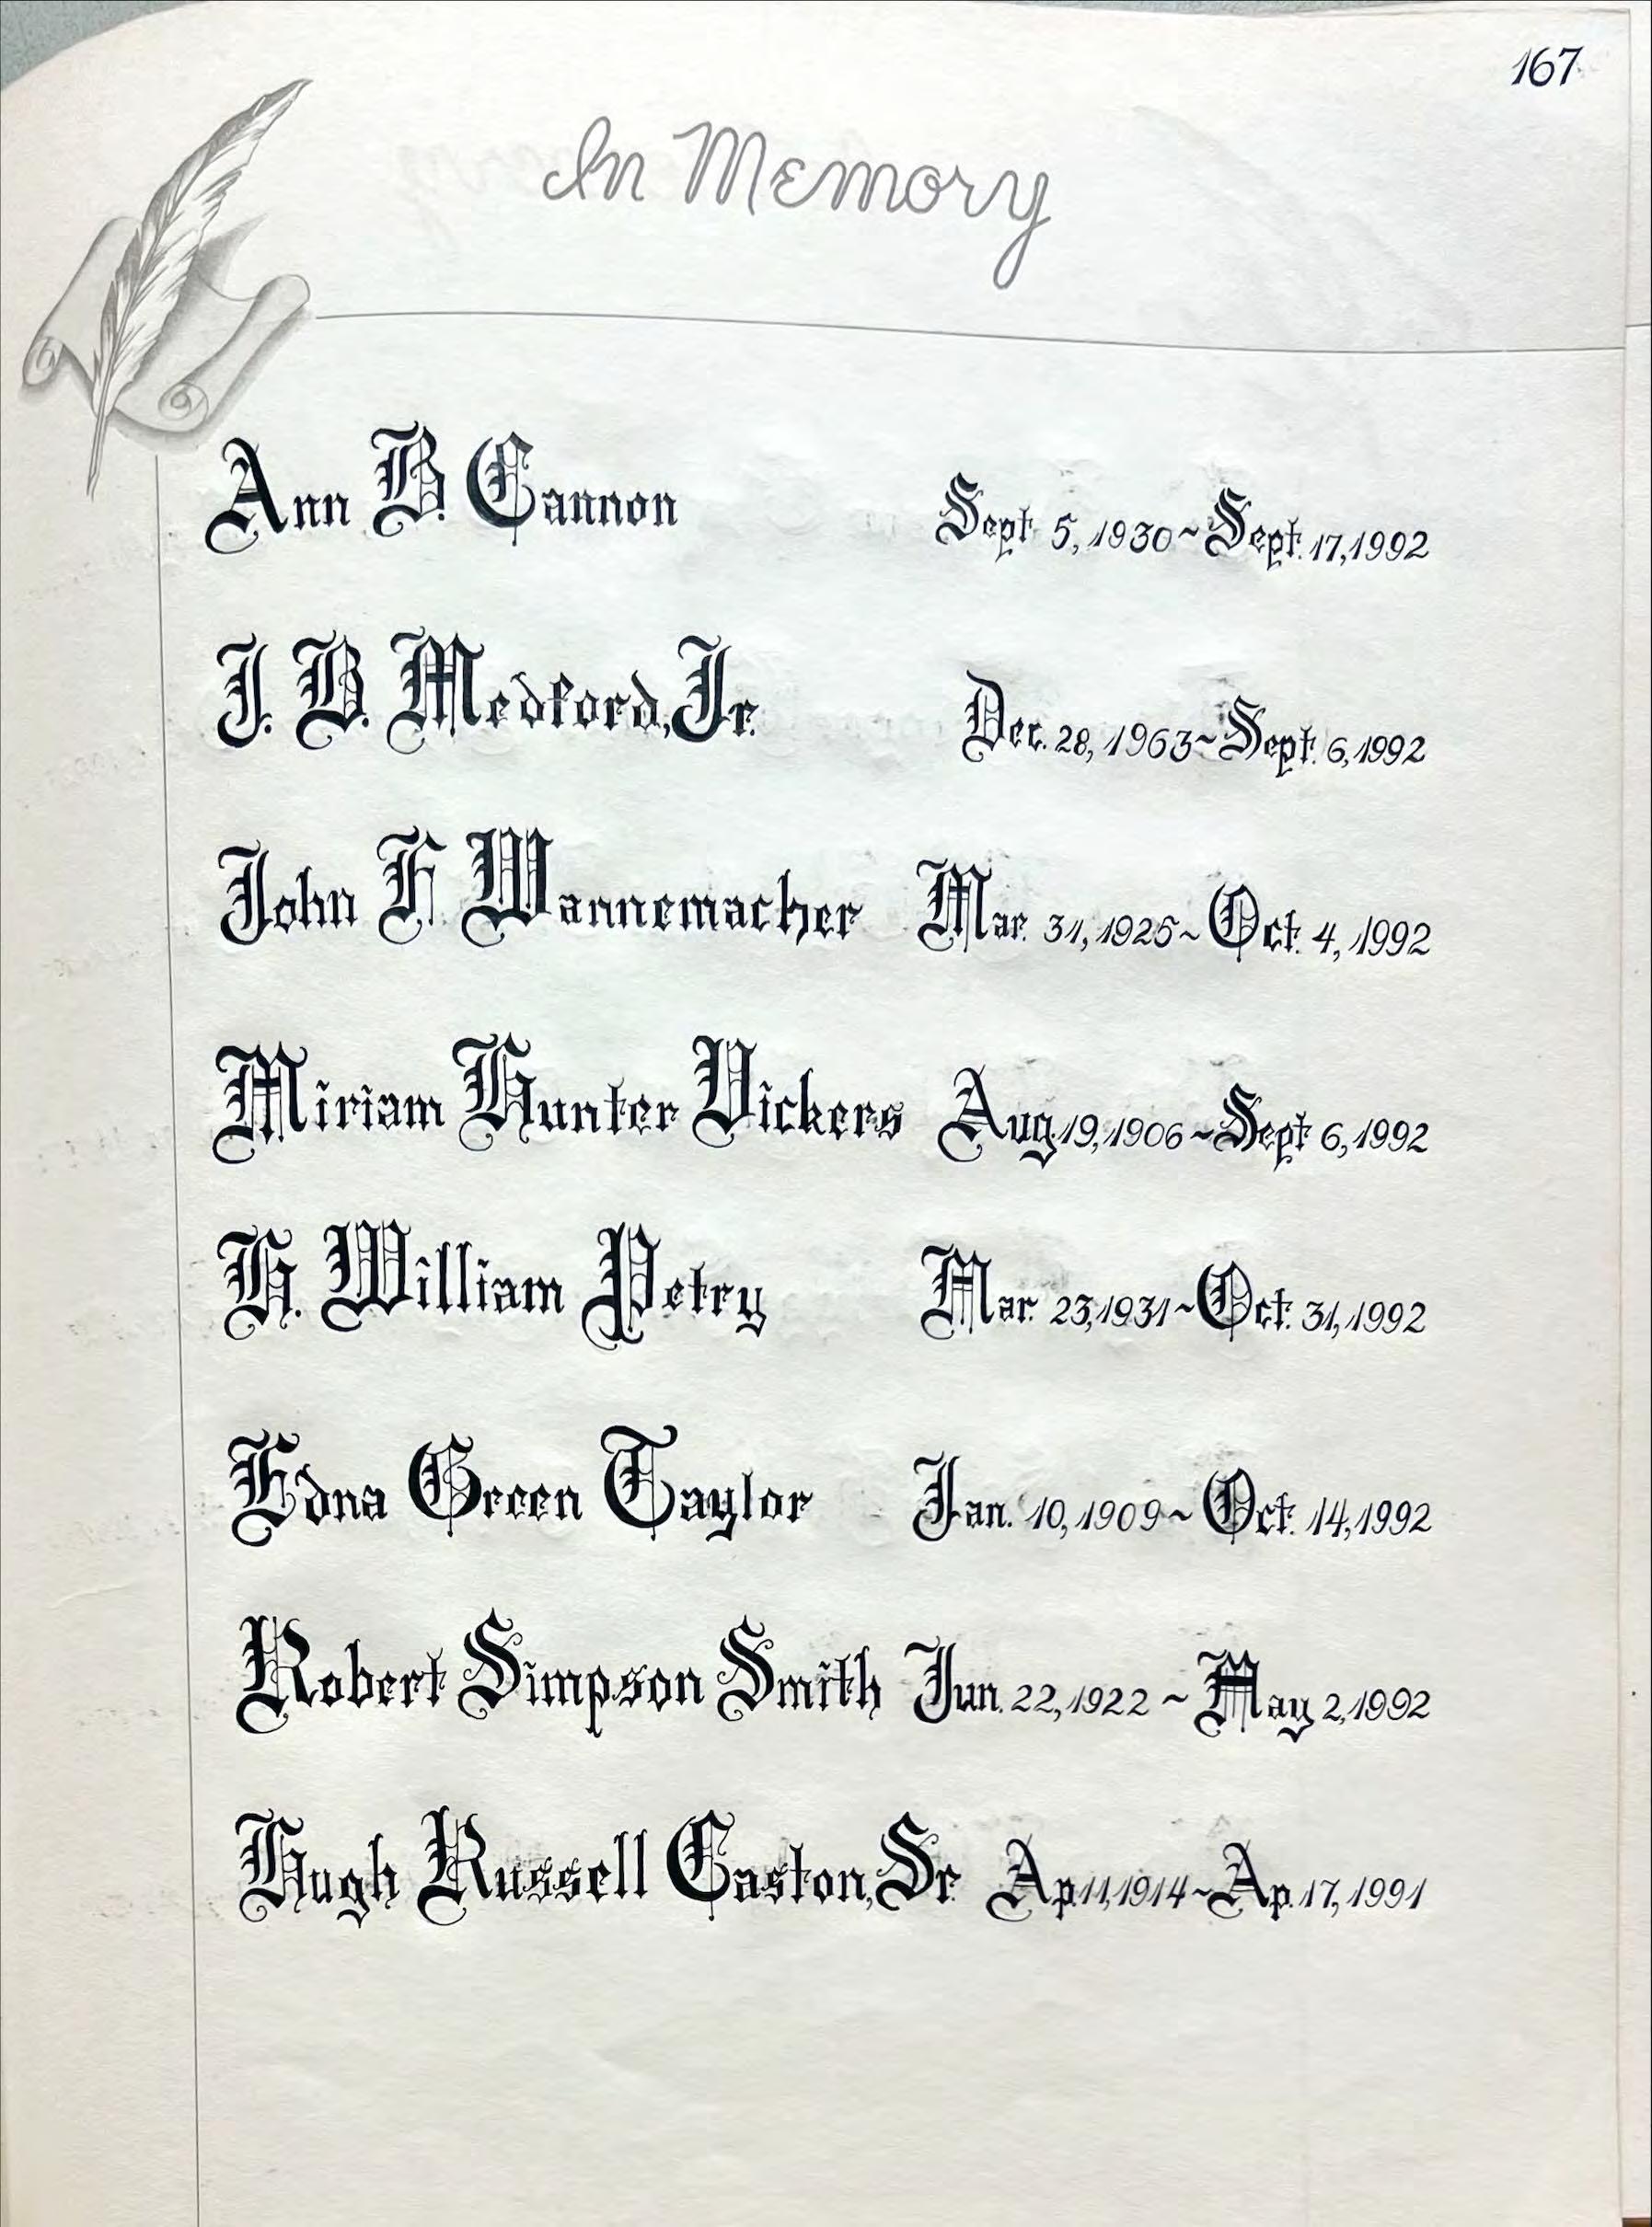 167
In Memory
Ann B. Cannon Sept. 5, 1930~Sept. 17, 1992
J. B. Medford, Jr. Dec. 28, 1963~Sept. 6, 1992
John F. Wannemacher Mar. 31, 1925~Oct. 4, 1992
Miriam Hunter Vickers Aug. 19, 1906~Sept. 6, 1992
H. William Petry Mar. 23, 1931~Oct. 31, 1992
Edna Green Taylor Jan. 10, 1909~Oct. 14, 1992
Robert Simpson Smith Jun. 22, 1922~May 2, 1992
Hugh Russell Caston, Sr. Ap. 11, 1914~Ap. 17, 1991